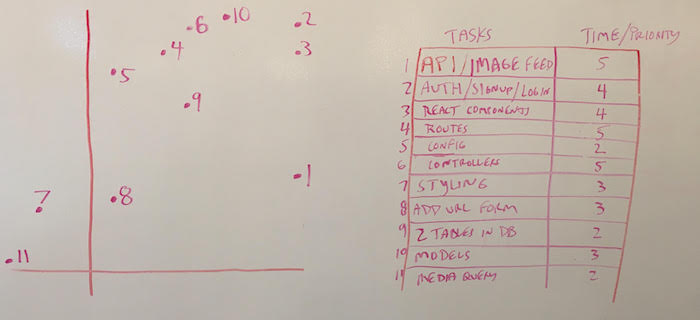 .6 .10 .2
.4 .3
.5
.9
.1
7 .8
.11
TASKS TIME/PRIORITY
1 API/IMAGE FEED 5
2 AUTH/SIGNUP/LOGIN 4
3 REACT COMPONENTS 4
4 ROUTES 5
5 CONFIG 2
6 CONTROLLERS 5
7 STYLING 3
8 ADD URL FORM 3
9 2 TABLES IN DB 2
10 MODELS 3
11 MEDIA QUERY 2